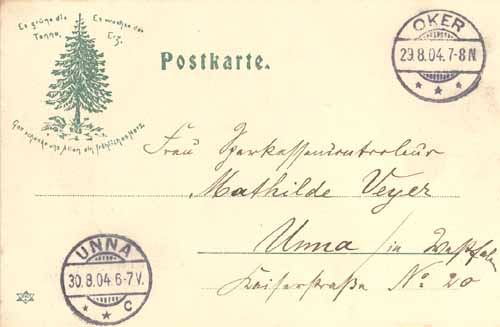 Es grüne die Tanne,
Es wachse das Erz,
Gott schenke uns Allen ein fröhliches Herz
Postkarte.
OKER
29.8.04.7-8N
Frau Sparkassencontroleur
Mathilde Veyer
Unna in Westfalen
Kaiserstraße No 20
UNNA
30.8.04.6-7V.
C